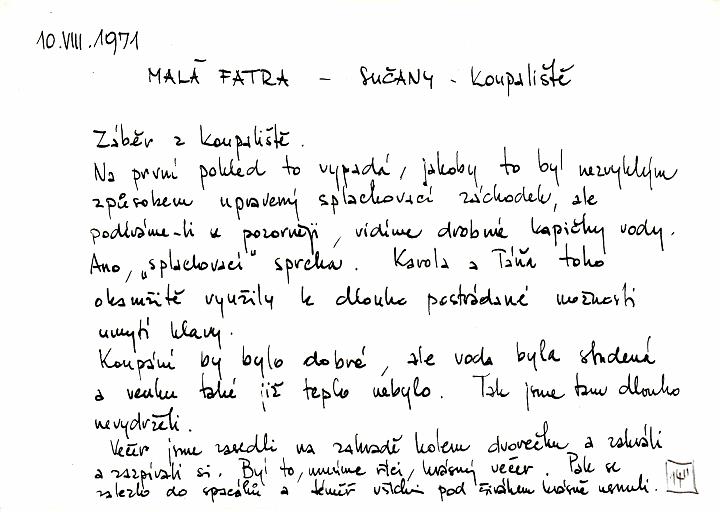 10.VIII.1971
MALÁ FATRA - SUČANY - Koupaliště
Záběr z koupaliště.
Na první pohled to vypadá, jakoby to byl nezvyklým
způsobem upravený splachovací záchodek, ale
podíváme-li se pozorněji, vidíme drobné kapičky vody.
Ano, „splachovací" sprcha. Karola a Táňa toho
okamžitě využily k dlouho postrádané možnosti
umytí hlavy.
Koupání by bylo dobré, ale voda byla studená
a venku také již teplo nebylo. Tak jsme tam dlouho
nevydrželi.
Večer jsme zasedli na zahradě kolem dvorečku a zahráli
a zazpívali si. Byl to, musíme říci, krásný večer. Pak se
zalezlo do spacáků a téměř všichni pod širákem krásně usnuli.